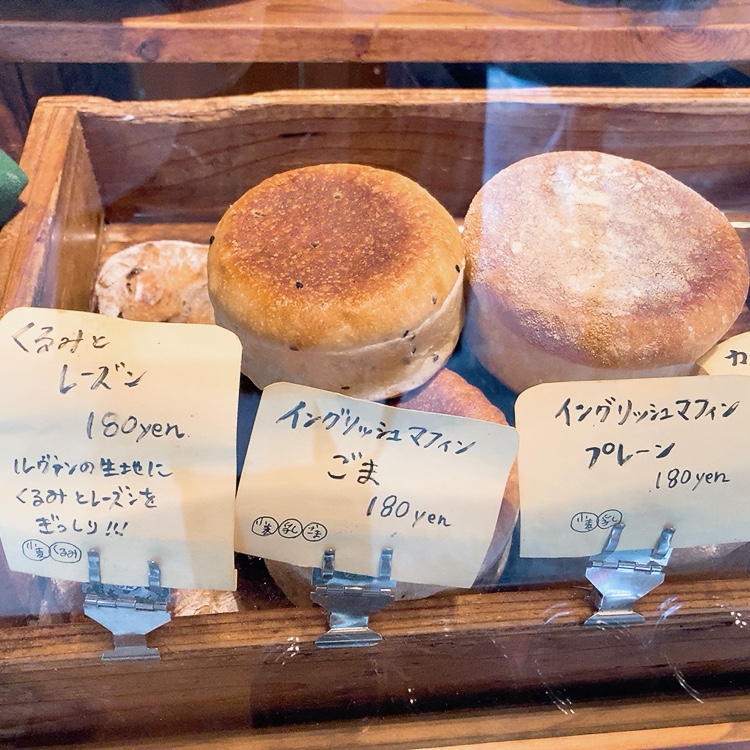 くるみと
レーズン
180yen
ルヴァンの生地に
くるみとレーズンを
ぎっしり!!!
小麦 くるみ
イングリッシュマフィン
ごま
180yen
小麦 乳 ごま
イングリッシュマフィン
プレーン
180yen
小麦 乳
カ